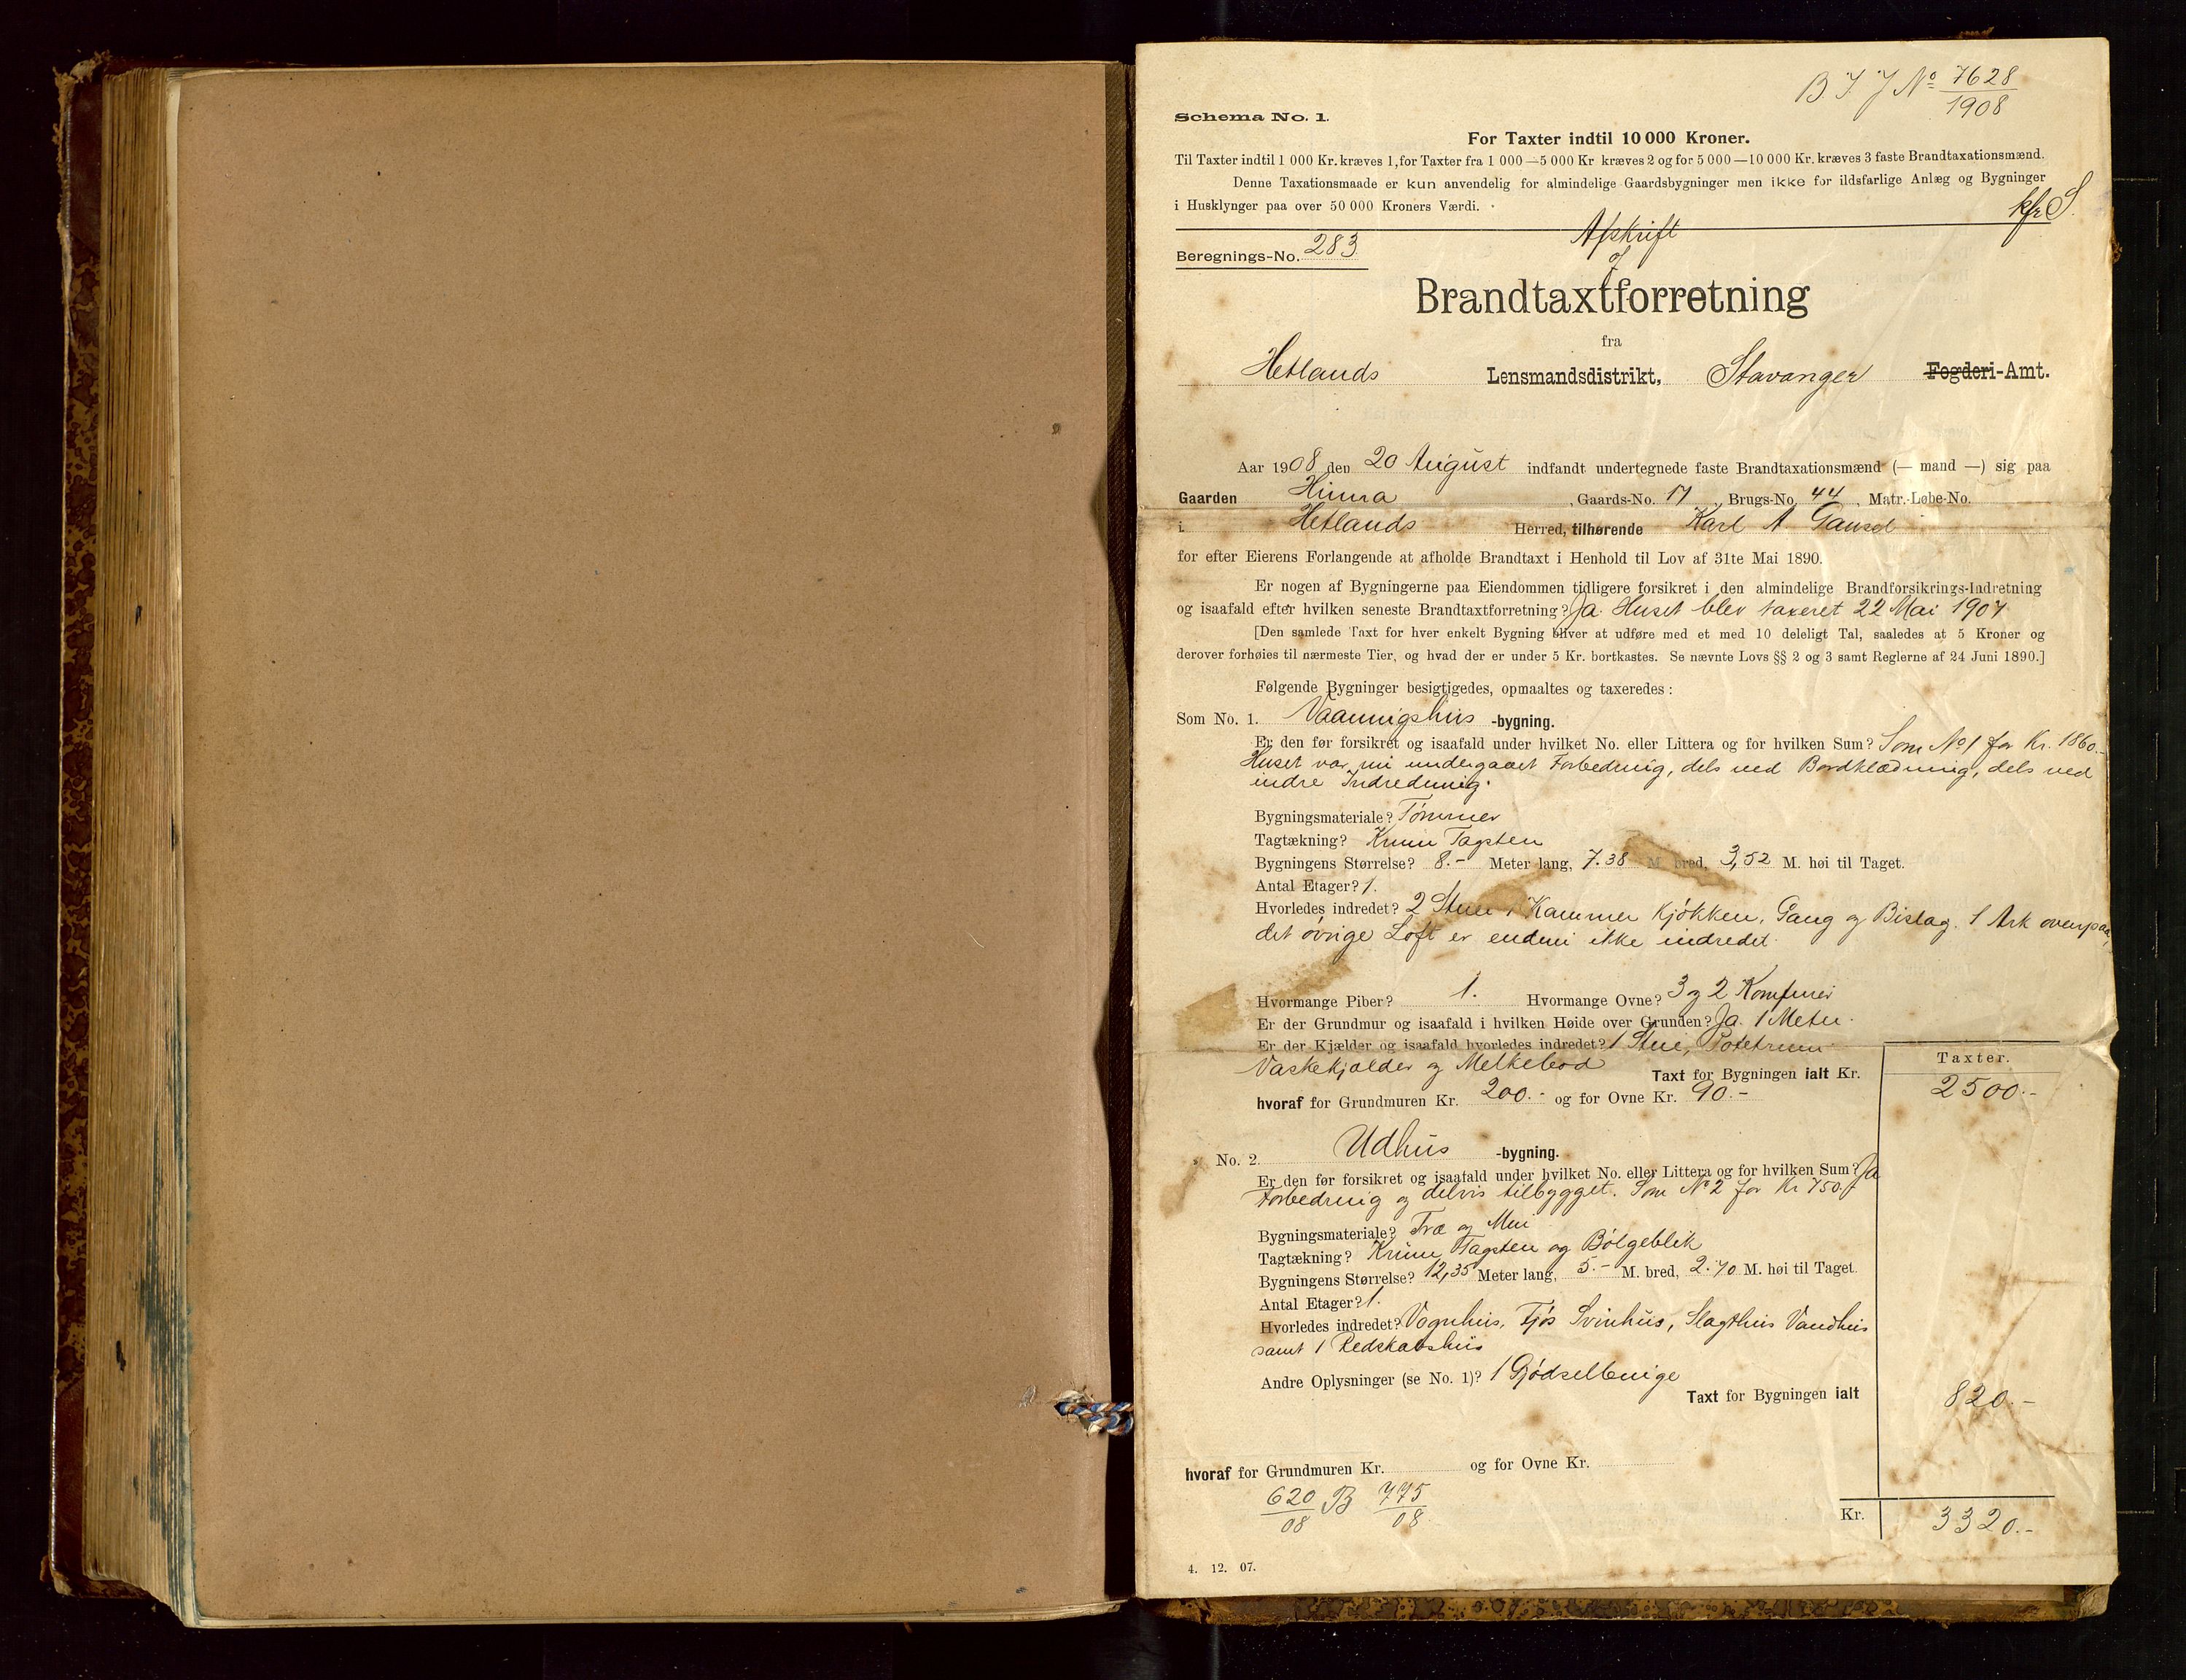 B. J. J No 7628
1908
Schema No. 1.
For Taxter indtil 10 000 Kroner.
Til Taxter indtil 1 000 Kr. kræves 1, for Taxter fra 1 000—5 000 Kr kræves 2 og for 5 000—10 000 Kr. kræves 3 faste Brandtaxationsmænd.
Denne Taxationsmaade er kun anvendelig for almindelige Gaardsbygninger men ikke for ildsfarlige Anlæg og Bygninger
i Husklynger paa over 50 000 Kroners Værdi.
kfr S.
Afskrift
Beregnings-No. 283
af
Brandtaxtforretning
fra
Hetlands Lensmandsdistrikt, Stavanger Fogderi-Amt.
Aar 1908 den 20 August indfandt undertegnede faste Brandtaxationsmænd (— mand —) sig paa
Gaarden Hinna, Gaards-No. 17, Brugs-No. 44, Matr.-Løbe-No.
i Hetlands Herred, tilhørende Karl A Gausel
for efter Eierens Forlangende at afholde Brandtaxt i Henhold til Lov af 31te Mai 1890.
Er nogen af Bygningerne paa Eiendommen tidligere forsikret i den almindelige Brandforsikrings-Indretning
og isaafald efter hvilken seneste Brandtaxtforretning? Ja. Huset blev taxeret 22 Mai 1907
[Den samlede Taxt for hver enkelt Bygning bliver at udføre med et med 10 deleligt Tal, saaledes at 5 Kroner og
derover forhøies til nærmeste Tier, og hvad der er under 5 Kr. bortkastes. Se nævnte Lovs §§ 2 og 3 samt Reglerne af 24 Juni 1890.]
Følgende Bygninger besigtigedes, opmaaltes og taxeredes:
Som No. 1. Vaaningshus -bygning.
Er den før forsikret og isaafald under hvilket No. eller Littera og for hvilken Sum? Som No 1 for Kr. 1860.-
Huset var nu undergaaet Forbedring, dels ved Bordklædning, dels ved
indre Indredning.
Bygningsmateriale? Tømmer
Tagtækning? Krum Tagsten
Bygningens Størrelse? 8.- Meter lang, 7.38 M bred, 3,52 M. høi til Taget.
Antal Etager? 1.
Hvorledes indredet? 2 Stuer 1 Kammer Kjøkken, Gang og Bislag. 1 Ark ovenpaa,
det øvrige Loft er endnu ikke indredet.
Hvormange Piber? 1. Hvormange Ovne? 3 og 2 Komfurer
Er der Grundmur og isaafald i hvilken Høide over Grunden? Ja. 1 Meter.
Er der Kjælder og isaafald hvorledes indredet? 1 Stue, Potetrum
Vaskekjælder og Melkebod
Taxter.
Taxt for Bygningen ialt Kr. 2500.-
hvoraf for Grundmuren Kr. 200.- og for Ovne Kr. 90.-
No. 2. Udhus -bygning.
Er den før forsikret og isaafald under hvilket No. eller Littera og for hvilken Sum? Ja
Forbedring og delvis tilbygget. Som No 2 for Kr 750.-
Bygningsmateriale? Træ og Mur
Tagtækning? Krum Tagsten og Bølgeblik
Bygningens Størrelse? 12,35 Meter lang, 5.- M. bred, 2.70 M. høi til Taget.
Antal Etager? 1.
Hvorledes indredet? Vognhus, Fjøs Svinhus, Slagthus Vandhus
samt 1 Redskabshus
Andre Oplysninger (se No. 1)? 1 Gjødselbinge
Taxt for Bygningen ialt 820.-
hvoraf for Grundmuren Kr. og for Ovne Kr.
620 B 775
08 08.
Kr. 3320.-
4. 12. 07.